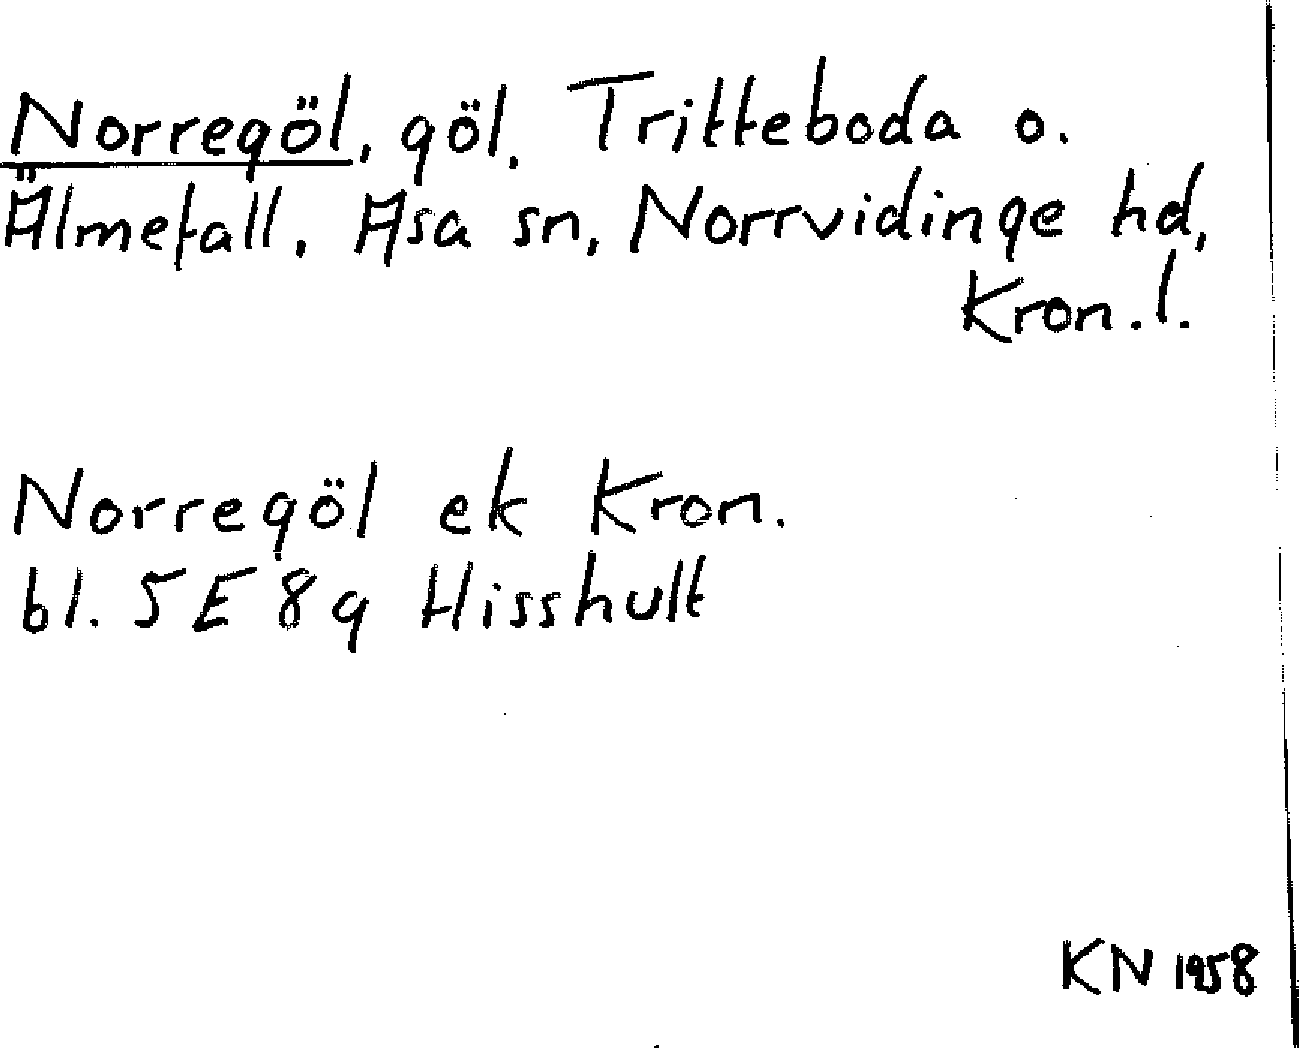 Norregöl, göl. Tritteboda o.
Älmefall. Asa sn, Norrvidinge hd,
Kron.l.
Norregöl ek Kron.
bl. 5E 8g Hisshult
KN 1958